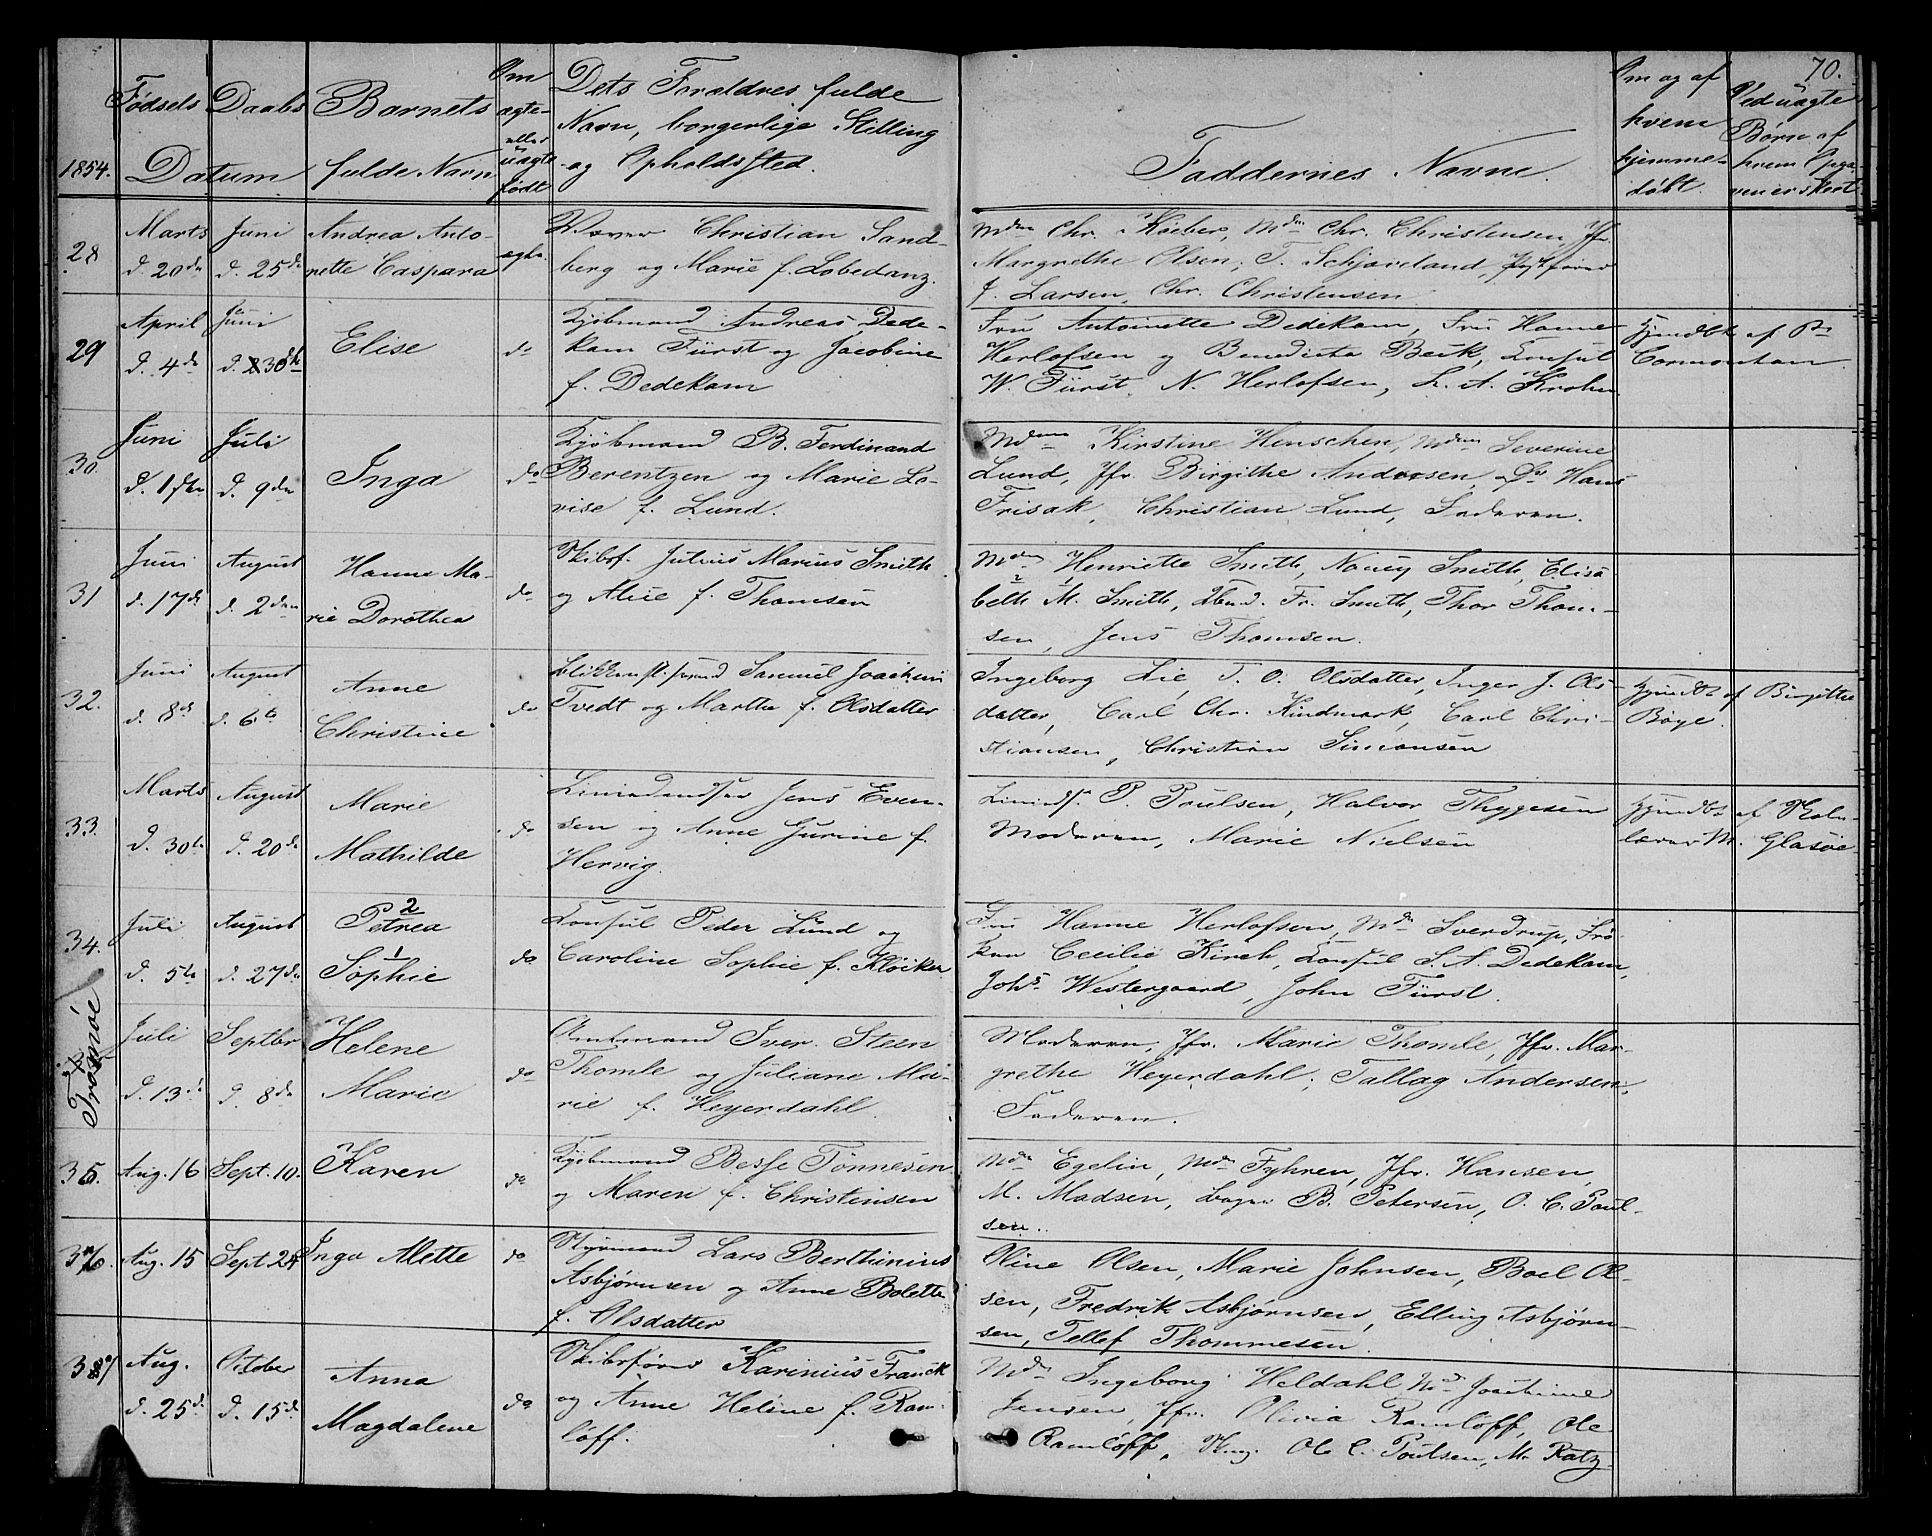 70.
1854.
Fødsels Daabs
Datum
Barnets
fulde Navn
Om
ægte
eller
uægte
født
Dets Forældres fulde
Navn, borgerlige Stilling
og Opholdssted.
Faddernes Navne.
Om og af
hvem
hjemme-
døbt.
Ved uægte
Børn af
hvem Opga-
ven er skeet
28
Marts
d. 20de
Juni
d. 25de
Andrea Anto-
nette Caspara
ægte
Christian Sand-
berg og Marie f. Lobedanz.
Mdm Chr. Kieber, Mdm Chr. Christensen, Jfr.
Margrethe Olsen, T. Schjaveland,
J. Larsen, Chr. Christensen
29
April
d. 4de
Juni
d. 30de
Elise
do
Kjøbmand Andreas Dede-
kam Fürst og Jacobine
f. Dedekam
Fru Antoinette Dedekam, Fru Hanne
Herlofsen og Benedicte Beck, Consul
W. Fürst, N. Herlofsen, L. A. Krohn
Hjemdbt af
Cormontan
30.
Juni
d. 1ste
Juli
d. 9de
Inga
do
Kjøbmand B. Ferdinand
Berentzen og Marie Lo-
vise f. Lund.
Mdm Kirstine Henschen, Mdm Severine
Lund, Jfr. Birgithe Andersen, Hans
Frisak, Christian Lund, Faderen.
31
Juni
d. 17de
August
d. 2den
Hanne Ma-
rie Dorothea
do
Skibsf. Julius Marius Smith
og Alice f. Thomsen
Mdm Henriette Smith, Nancy Smith, Elisa-
beth M. Smith, Fr. Smith, Thor Thom-
sen, Jens Thomsen.
32.
Juni
d. 8de
August
d. 6te
Anne
Christine
do
Samuel Joachim
Tvedt og Marthe f. Olsdatter
Ingeborg Lie, T. O. Olsdatter, Inger J. Ols-
datter, Carl Chr. Kindmark, Carl Chri-
stiansen, Christian Simonsen
Hjemdbt af Birgitte
Bøye.
33.
Marts
d. 30te
August
d. 20de
Marie
Mathilde
do
Jens Even-
sen og Anne Gurine f.
Hervig.
P. Poulsen, Halvor Thygesen
Moderen, Marie Nielsen
Hjemdbt af Skole-
lærer M. Glasøe
34.
Juli
d. 5te
August
d. 27de
2
Petrea
1
Sophie
do
Consul Peder Lund og
Caroline Sophie f. Kløcker
Fru Hanne Herlofsen, Mdm Sverdrup, Frø-
ken Cecilie Kirch, Consul S. A. Dedekam,
Johs Westergaard, John Fürst.
Tromøe
Juli
d. 13de
Septber
d. 8de
Helene
Marie
do
Amtmand Iver Steen
Thomle og Juliane Ma-
rie f. Heyerdahl.
Moderen, Jfr. Marie Thomle, Jfr. Mar-
grethe Heyerdahl, Tallag Andersen,
Faderen.
35.
Aug. 16
Sept. 10.
Karen
do
Kjøbmand Besse Tønnesen
og Maren f. Christensen
Mdm Egelin, Mdm Fyhren, Jfr. Hansen,
M. Madsen, B. Petersen, O. C. Poul-
sen.
36.
Aug. 15
Sept. 24
Inga Alette
do
Styrmand Lars Berthinius
Asbjørnsen og Anne Bolette
f. Olsdatter
Oline Olsen, Marie Johnsen, Boel Ol-
sen, Fredrik Asbjørnsen, Elling Asbjørn-
sen, Tellef Thommesen.
37
Aug.
d. 25de
October
d. 15de
Anna
Magdalene
do
Skibsfører Karinius Franck
og Anne Heléne f. Ram-
løff.
Mdm Ingeborg Heldahl, Mdm Joachime
Jensen, Jfr. Olivia Ramløff, Ole
Ramløff, Ole C. Poulsen, M. Ratz